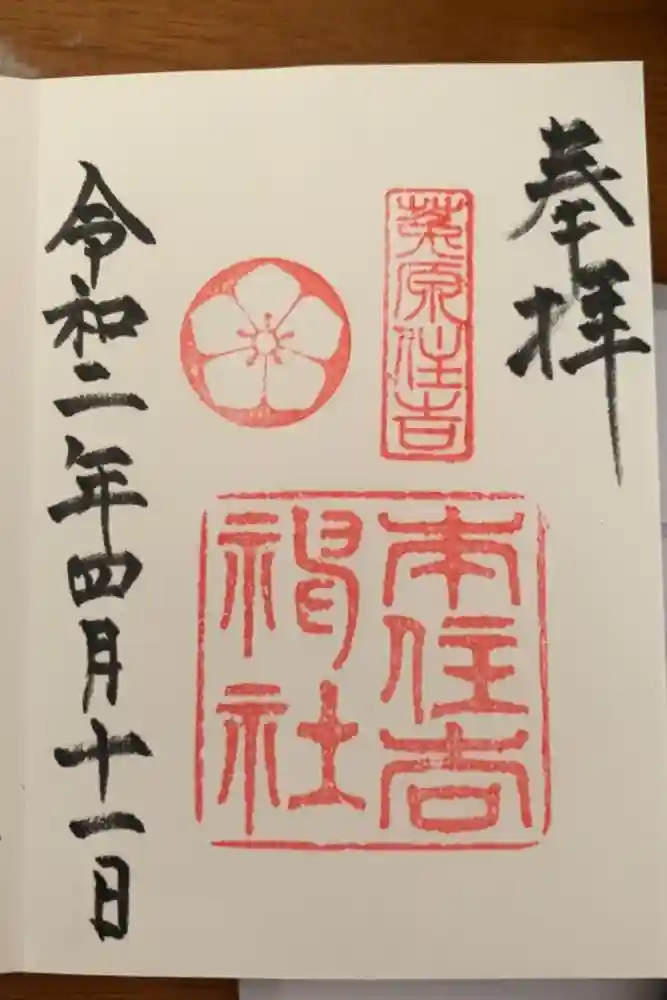 奉拝
菟原住吉
本住吉
神社
令和二年四月十一日